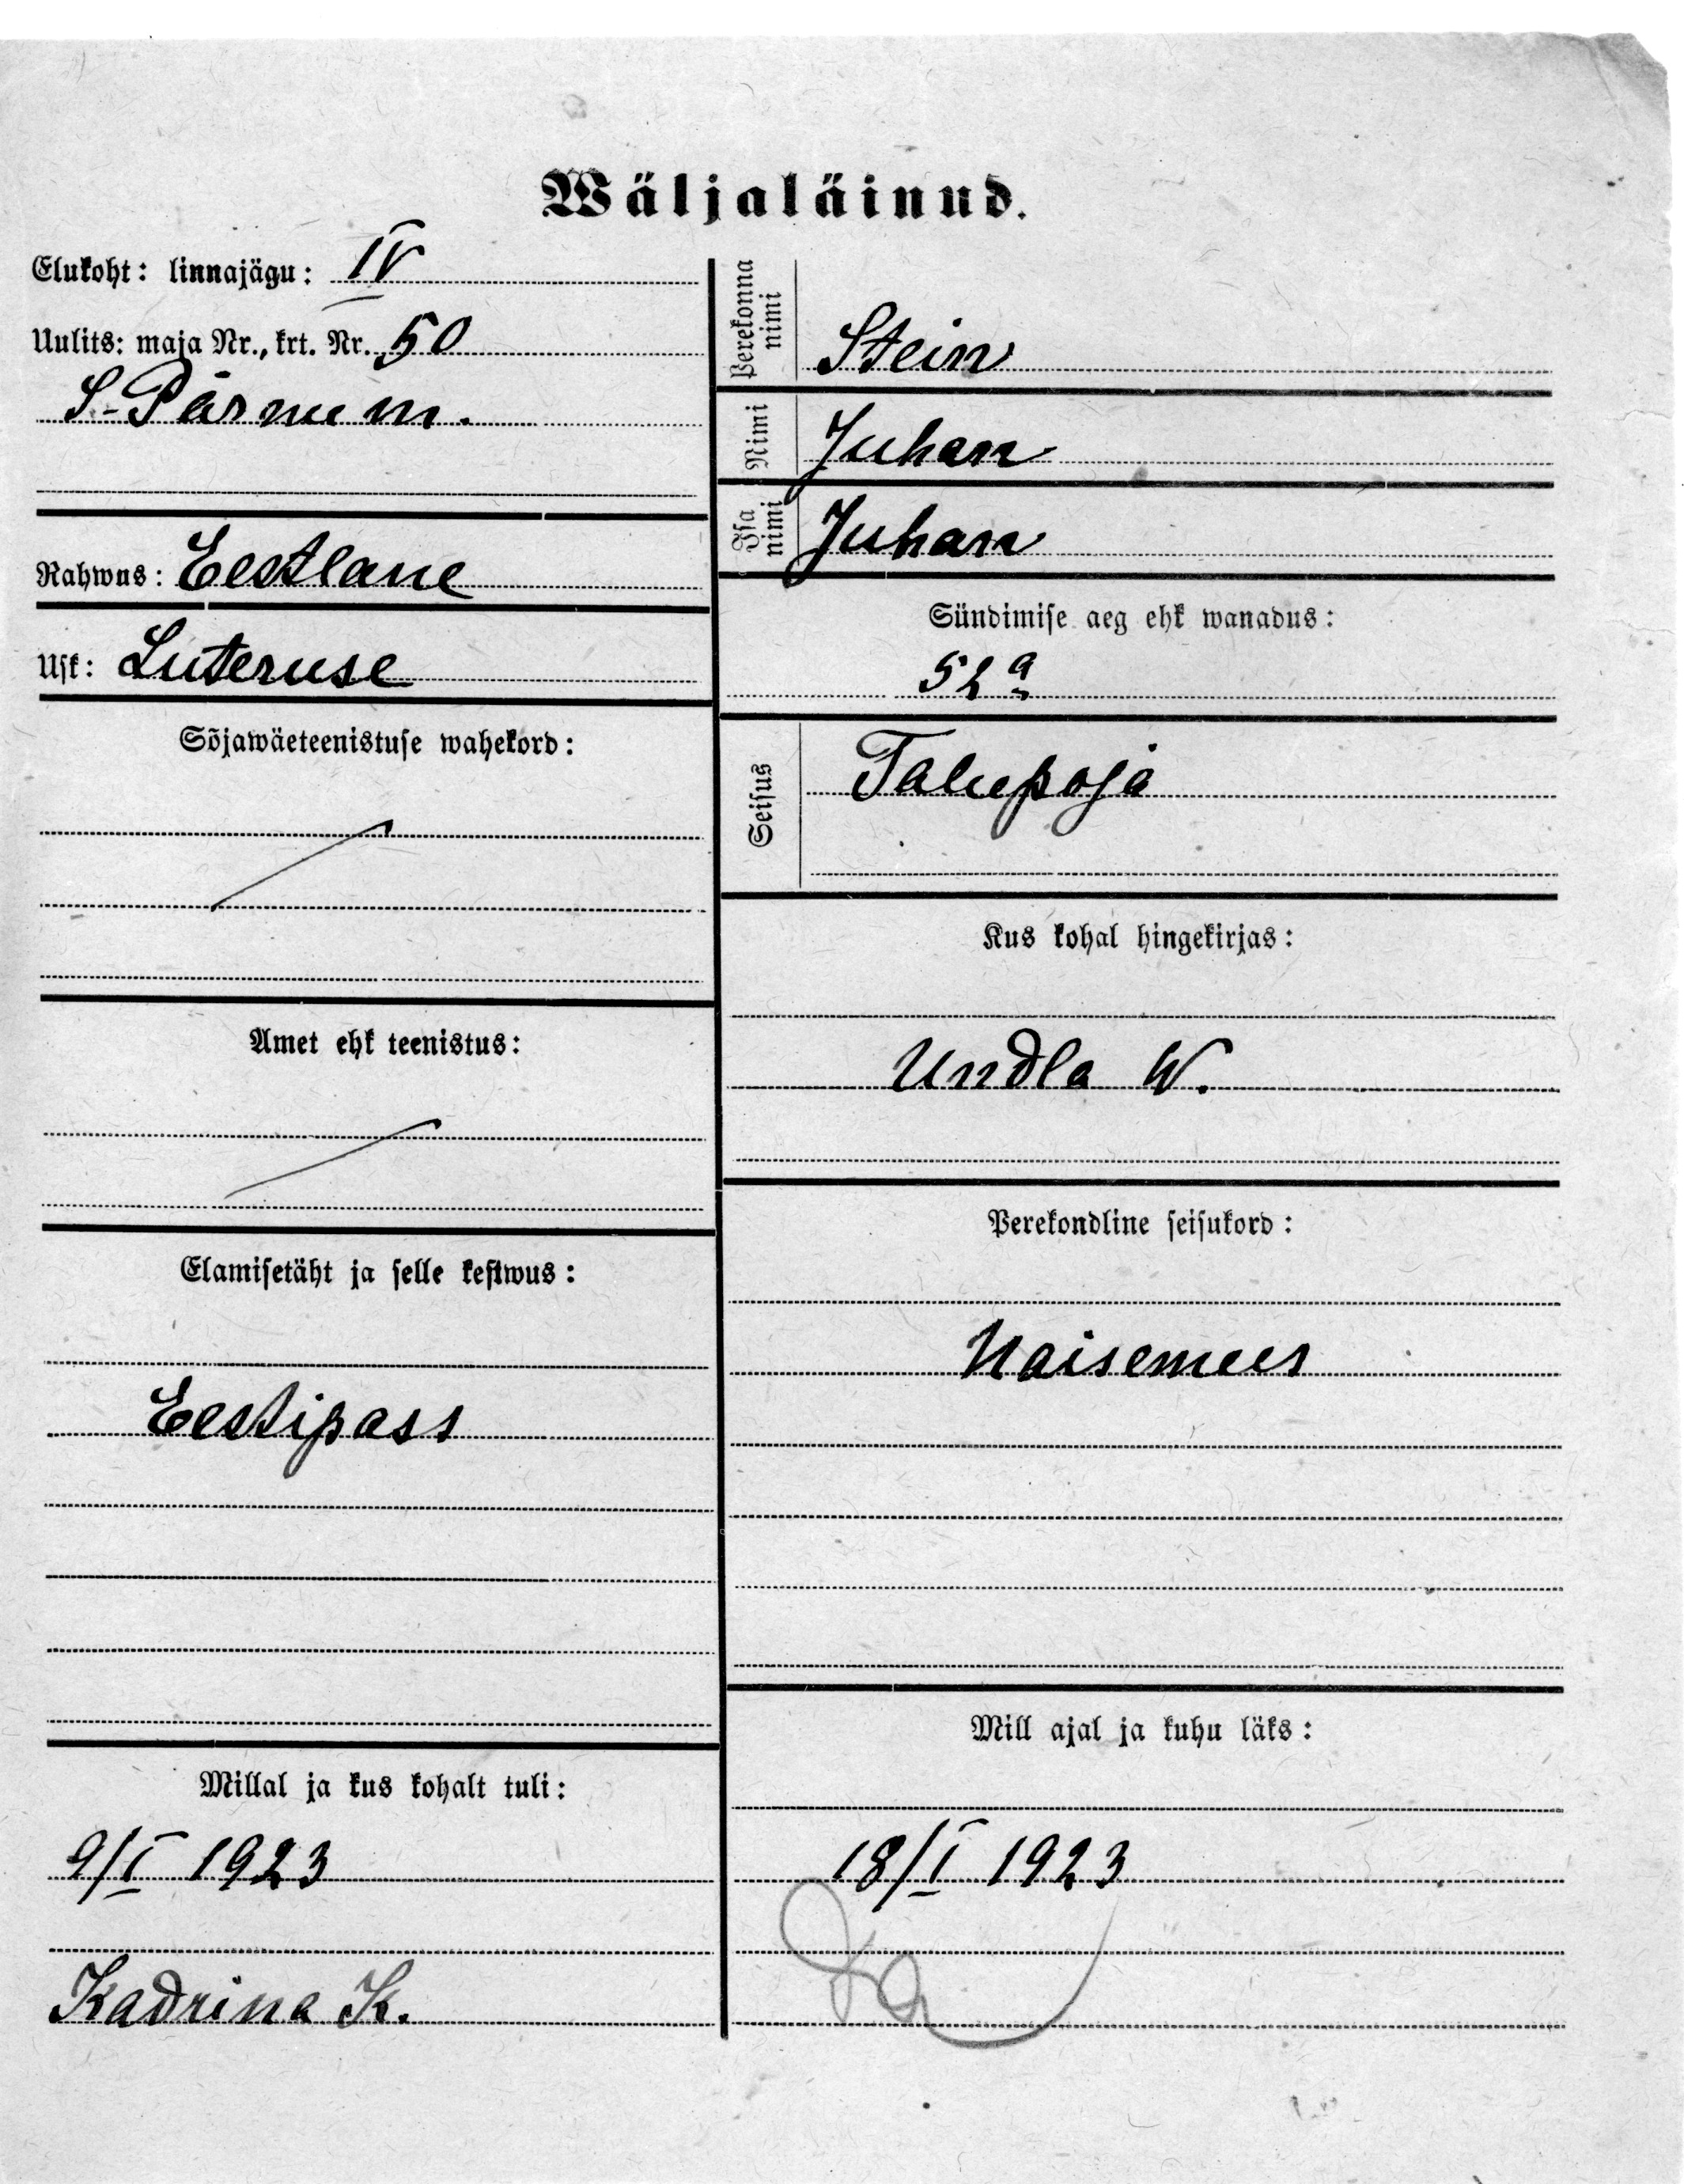 Wäljaläinud.
Elukoht: linnajägu: IV
Uulits: maja Nr., krt. Nr. 50
S-Pärnu m.
Rahwus: Eestlane
Usk: Luteruse
Sõjawäeteenistuse wahekord:
Amet ehk teenistus:
Elamisetäht ja selle kestwus:
Eestipass
Millal ja kus kohalt tuli:
9/I 1923
Kadrina K.
Perekonna nimi Stein
Nimi Juhan
Isa nimi Juhan
Sündimise aeg ehk wanadus:
52 a
Seisus Talupoja
Kus kohal hingekirjas:
Undla W.
Perekondline seisukord:
Naisemees
Mill ajal ja kuhu läks:
18/I 1923